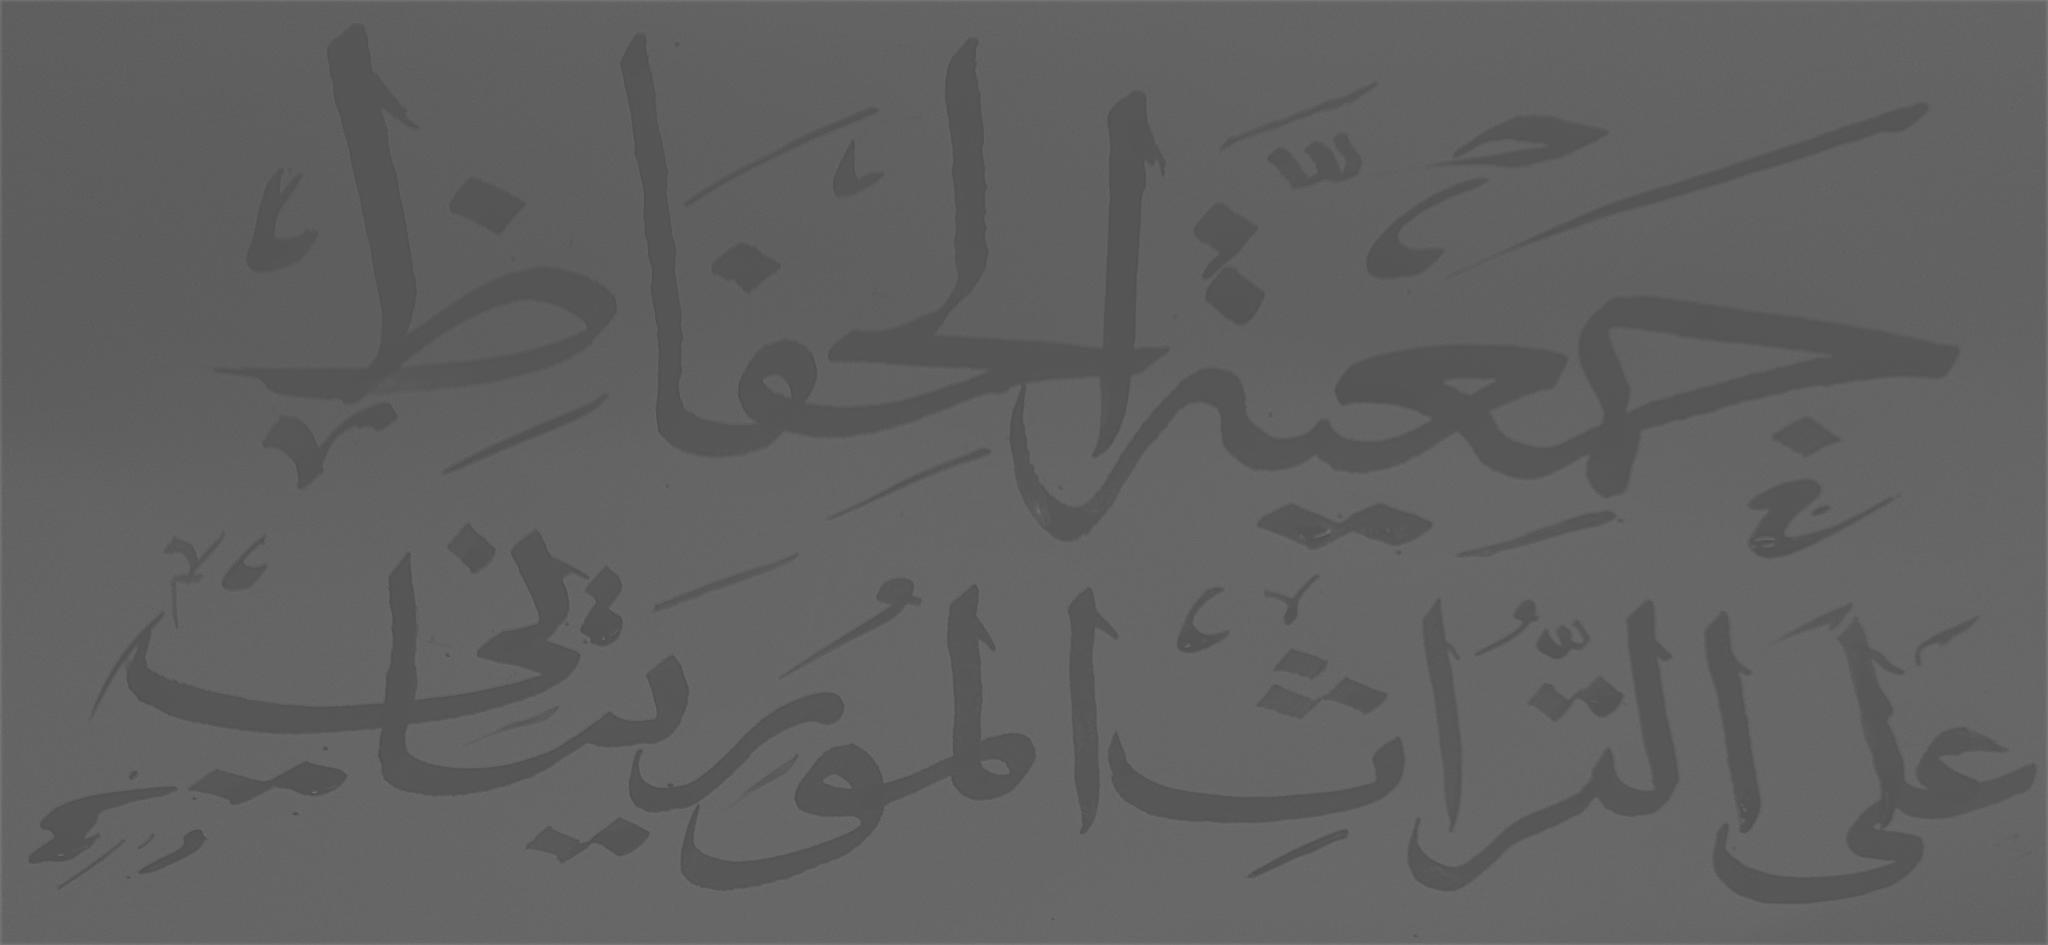 جَمْعِيَّةُ الحِفَاظِ
عَلَى التُّرَاثِ المُورِيتَانِي